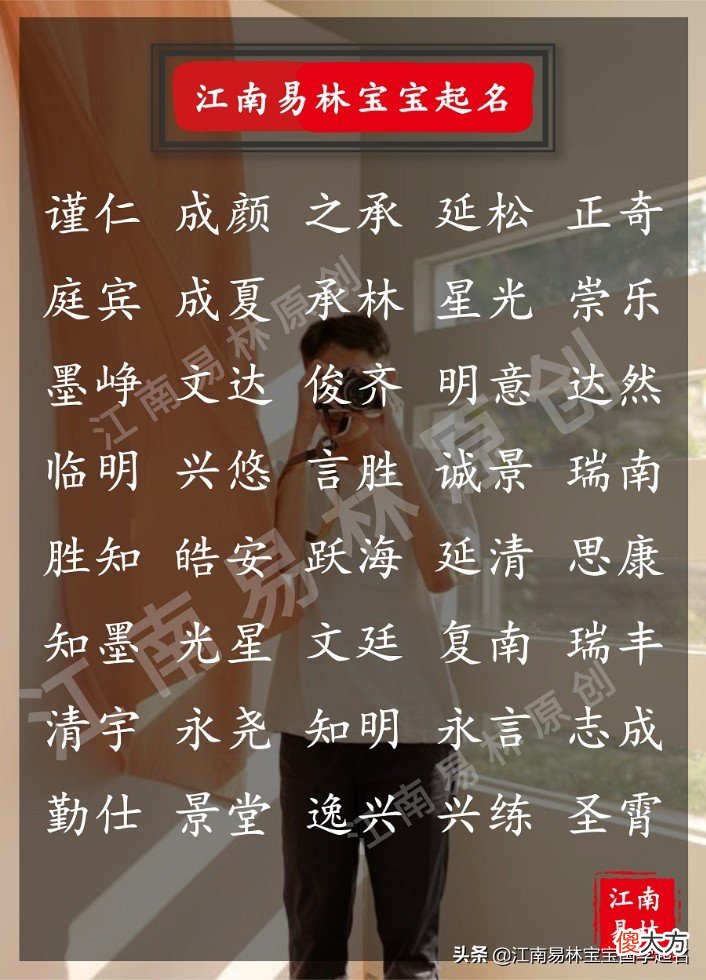 江南易林宝宝起名
谨仁 成颜 之承 延松 正奇
庭宾 成夏 承林 星光 崇乐
墨峥 文达 俊齐 明意 达然
临明 兴悠 言胜 诚景 瑞南
胜知 皓安 跃海 延清 思康
知墨 光星 文廷 复南 瑞丰
清宇 永尧 知明 永言 志成
勤仕 景堂 逸兴 兴练 圣霄
江南易林原创
江南易林原创
江南易林原创
江南
易林
傻大方
头条 @江南易林宝宝国学起名